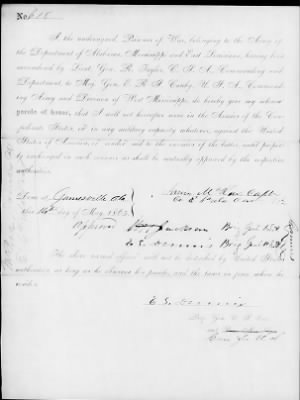 No.
I the undersigned, Prisoner of War, belonging to the Army of
the Department of Alabama, Mississippi and East Louisiana, having been
surrendered by Lieut. Gen. R. Taylor, C. S. A., Commanding said
Department, to Maj. Gen. E. R. S. Canby, U. S. A., Commanding
Army and Division of West Mississippi, do hereby give my solemn
parole of honor, that I will not hereafter serve in the Armies of the Con-
federate States, or in any military capacity whatever, against the United
States of America, or render aid to the enemies of the latter, until properly
exchanged in such manner as shall be mutually approved by the respective
authorities.
Done at Gainesville Ala
this 14th day of May, 1865.
Approved W H Jackson Brig Genl
E. S. Dennis Brig Genl
The above named officer will not be disturbed by United States
authorities as long as he observes his parole, and the laws in force where he
resides.
E. S. Dennis
Brig. Gen. U. S. Vol.